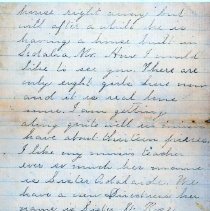 house right away but
will after a while he is
having a house built in
Sedalia, Mo. How I would
like to see you. There are
only eight girls here now
and it is real lone
some. I am getting
along with my music
have about thirteen pieces.
I like my music teacher
ever so much her name
is Sister Adelaide. We
have a new Directress her
name is Sister M.